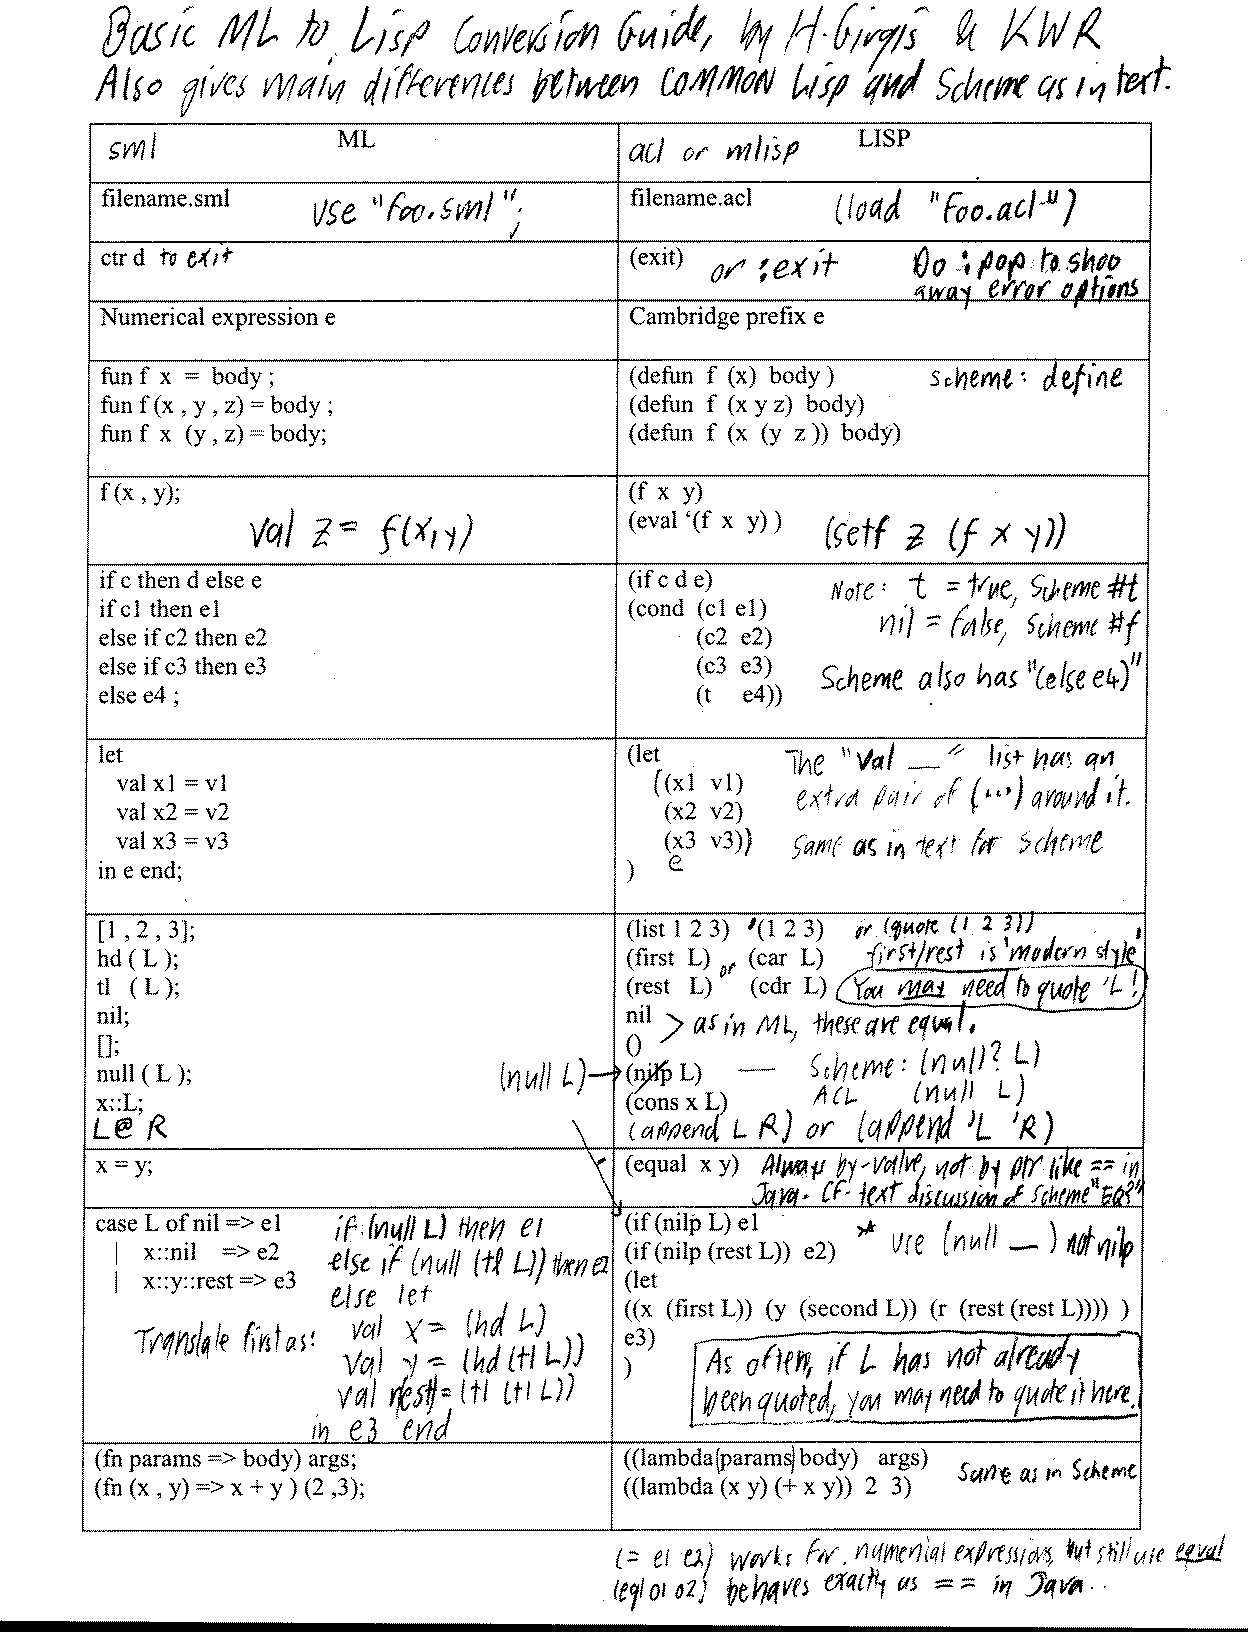 Basic ML to Lisp Conversion Guide, by H. Girgis & KWR
Also gives main differences between COMMON Lisp and Scheme as in text.
sml ML
acl or mlisp LISP
filename.sml use "foo.sml";
filename.acl (load "foo.acl")
ctr d to exit
(exit) or :exit Do :pop to shoo
away error options
Numerical expression e
Cambridge prefix e
fun f x = body ;
fun f (x , y , z) = body ;
fun f x (y , z) = body;
(defun f (x) body ) Scheme: define
(defun f (x y z) body)
(defun f (x (y z )) body)
f (x , y);
val z = f(x,y)
(f x y)
(eval ‘(f x y) ) (setf z (f x y))
if c then d else e
if c1 then e1
else if c2 then e2
else if c3 then e3
else e4 ;
(if c d e) Note: t = true, Scheme #t
(cond (c1 e1) nil = false, Scheme #f
(c2 e2)
(c3 e3) Scheme also has "(else e4)"
(t e4))
let
val x1 = v1
val x2 = v2
val x3 = v3
in e end;
(let The "Val __" list has an
((x1 v1) extra pair of (...) around it.
(x2 v2)
(x3 v3)) Same as in text for Scheme
) e
[1 , 2 , 3];
hd ( L );
tl ( L );
nil;
[];
null ( L );
x::L;
L@ R
(list 1 2 3) '(1 2 3) or (quote (1 2 3))
(first L) or (car L) first/rest is 'modern style'
(rest L) (cdr L) You may need to quote 'L !
nil > as in ML, these are equal.
()
(null L) → (nilp L) — Scheme: (null? L)
(cons x L) ACL (null L)
(append L R) or (append 'L 'R)
x = y;
(equal x y) Always by-value, not by ptr like == in
Java. CF. text discussion of Scheme "EQ?"
case L of nil => e1
| x::nil => e2
| x::y::rest => e3
if (null L) then e1
else if (null (tl L)) then e2
else let
Translate first as: val x = (hd L)
val y = (hd (tl L))
val rest = (tl (tl L))
in e3 end
(if (nilp L) e1 * use (null __) not nilp
(if (nilp (rest L)) e2)
(let
((x (first L)) (y (second L)) (r (rest (rest L)))) )
e3)
)
As often, if L has not already
been quoted, you may need to quote it here.
(fn params => body) args;
(fn (x , y) => x + y ) (2 ,3);
((lambda(params) body) args) Same as in Scheme
((lambda (x y) (+ x y)) 2 3)
(= e1 e2) works for numerical expressions, but still use equal
(eql o1 o2) behaves exactly as == in Java..